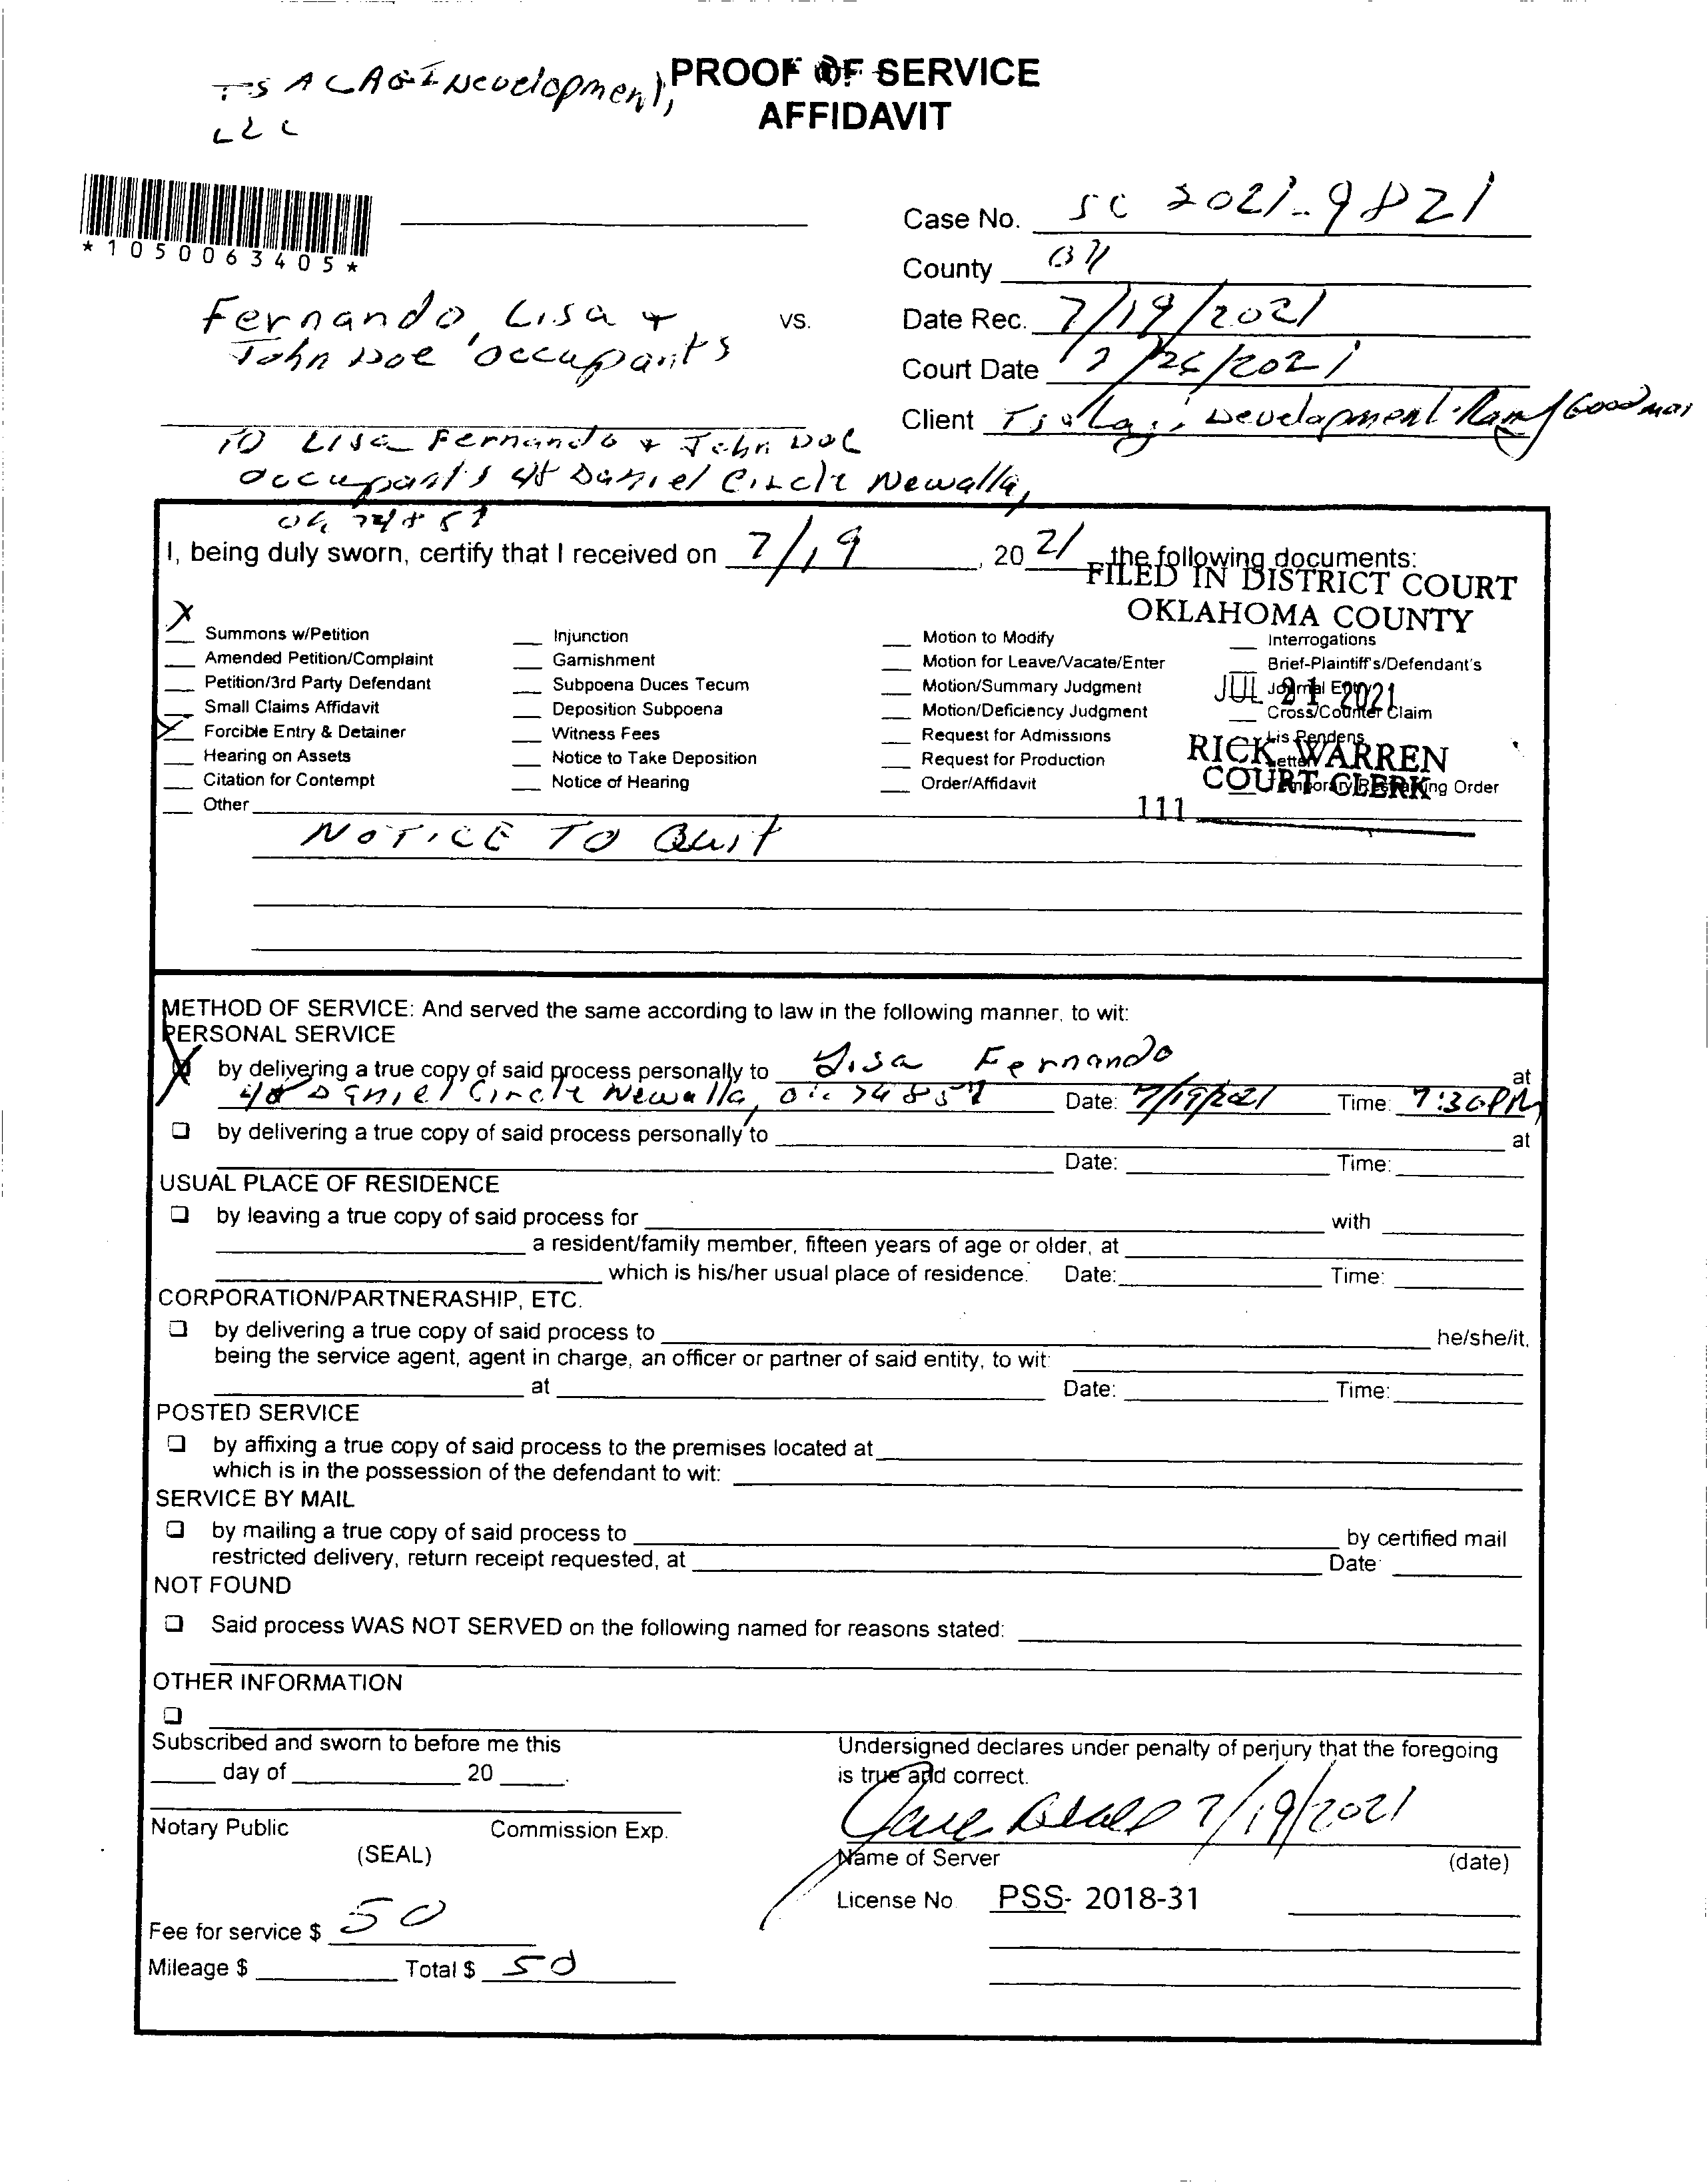 PROOF OF SERVICE
AFFIDAVIT
Development,
LLC
*1050063405*
Case No. SC 2021-9821
County
Date Rec. 7/19/2021
Fernando, Lisa +
John Doe occupants
vs.
Court Date 7/26/2021
Client Development
TO Lisa Fernando + John Doe
occupants Daniel Circle Newalla,
I, being duly sworn, certify that I received on 7/19, 2021 the following documents:
FILED IN DISTRICT COURT
OKLAHOMA COUNTY
JUL 21 2021
RICK WARREN
COURT CLERK
111
X Summons w/Petition
Amended Petition/Complaint
Petition/3rd Party Defendant
Small Claims Affidavit
X Forcible Entry & Detainer
Hearing on Assets
Citation for Contempt
Other
Injunction
Garnishment
Subpoena Duces Tecum
Deposition Subpoena
Witness Fees
Notice to Take Deposition
Notice of Hearing
Motion to Modify
Motion for Leave/Vacate/Enter
Motion/Summary Judgment
Motion/Deficiency Judgment
Request for Admissions
Request for Production
Order/Affidavit
Interrogations
Brief-Plaintiff's/Defendant's
Journal Entry
Cross/Counter Claim
Lis Pendens
Order
NOTICE TO Quit
METHOD OF SERVICE: And served the same according to law in the following manner, to wit:
PERSONAL SERVICE
X by delivering a true copy of said process personally to Lisa Fernando at
Daniel Circle Newalla, Date: 7/19/2021 Time: 7:30PM
by delivering a true copy of said process personally to at
Date: Time:
USUAL PLACE OF RESIDENCE
by leaving a true copy of said process for with
a resident/family member, fifteen years of age or older, at
which is his/her usual place of residence. Date: Time:
CORPORATION/PARTNERASHIP, ETC.
by delivering a true copy of said process to he/she/it,
being the service agent, agent in charge, an officer or partner of said entity, to wit:
at Date: Time:
POSTED SERVICE
by affixing a true copy of said process to the premises located at
which is in the possession of the defendant to wit:
SERVICE BY MAIL
by mailing a true copy of said process to by certified mail
restricted delivery, return receipt requested, at Date
NOT FOUND
Said process WAS NOT SERVED on the following named for reasons stated:
OTHER INFORMATION
Subscribed and sworn to before me this
day of 20
Notary Public Commission Exp.
(SEAL)
Undersigned declares under penalty of perjury that the foregoing
is true and correct.
7/19/2021
Name of Server (date)
License No. PSS- 2018-31
Fee for service $ 50
Mileage $ Total $ 50